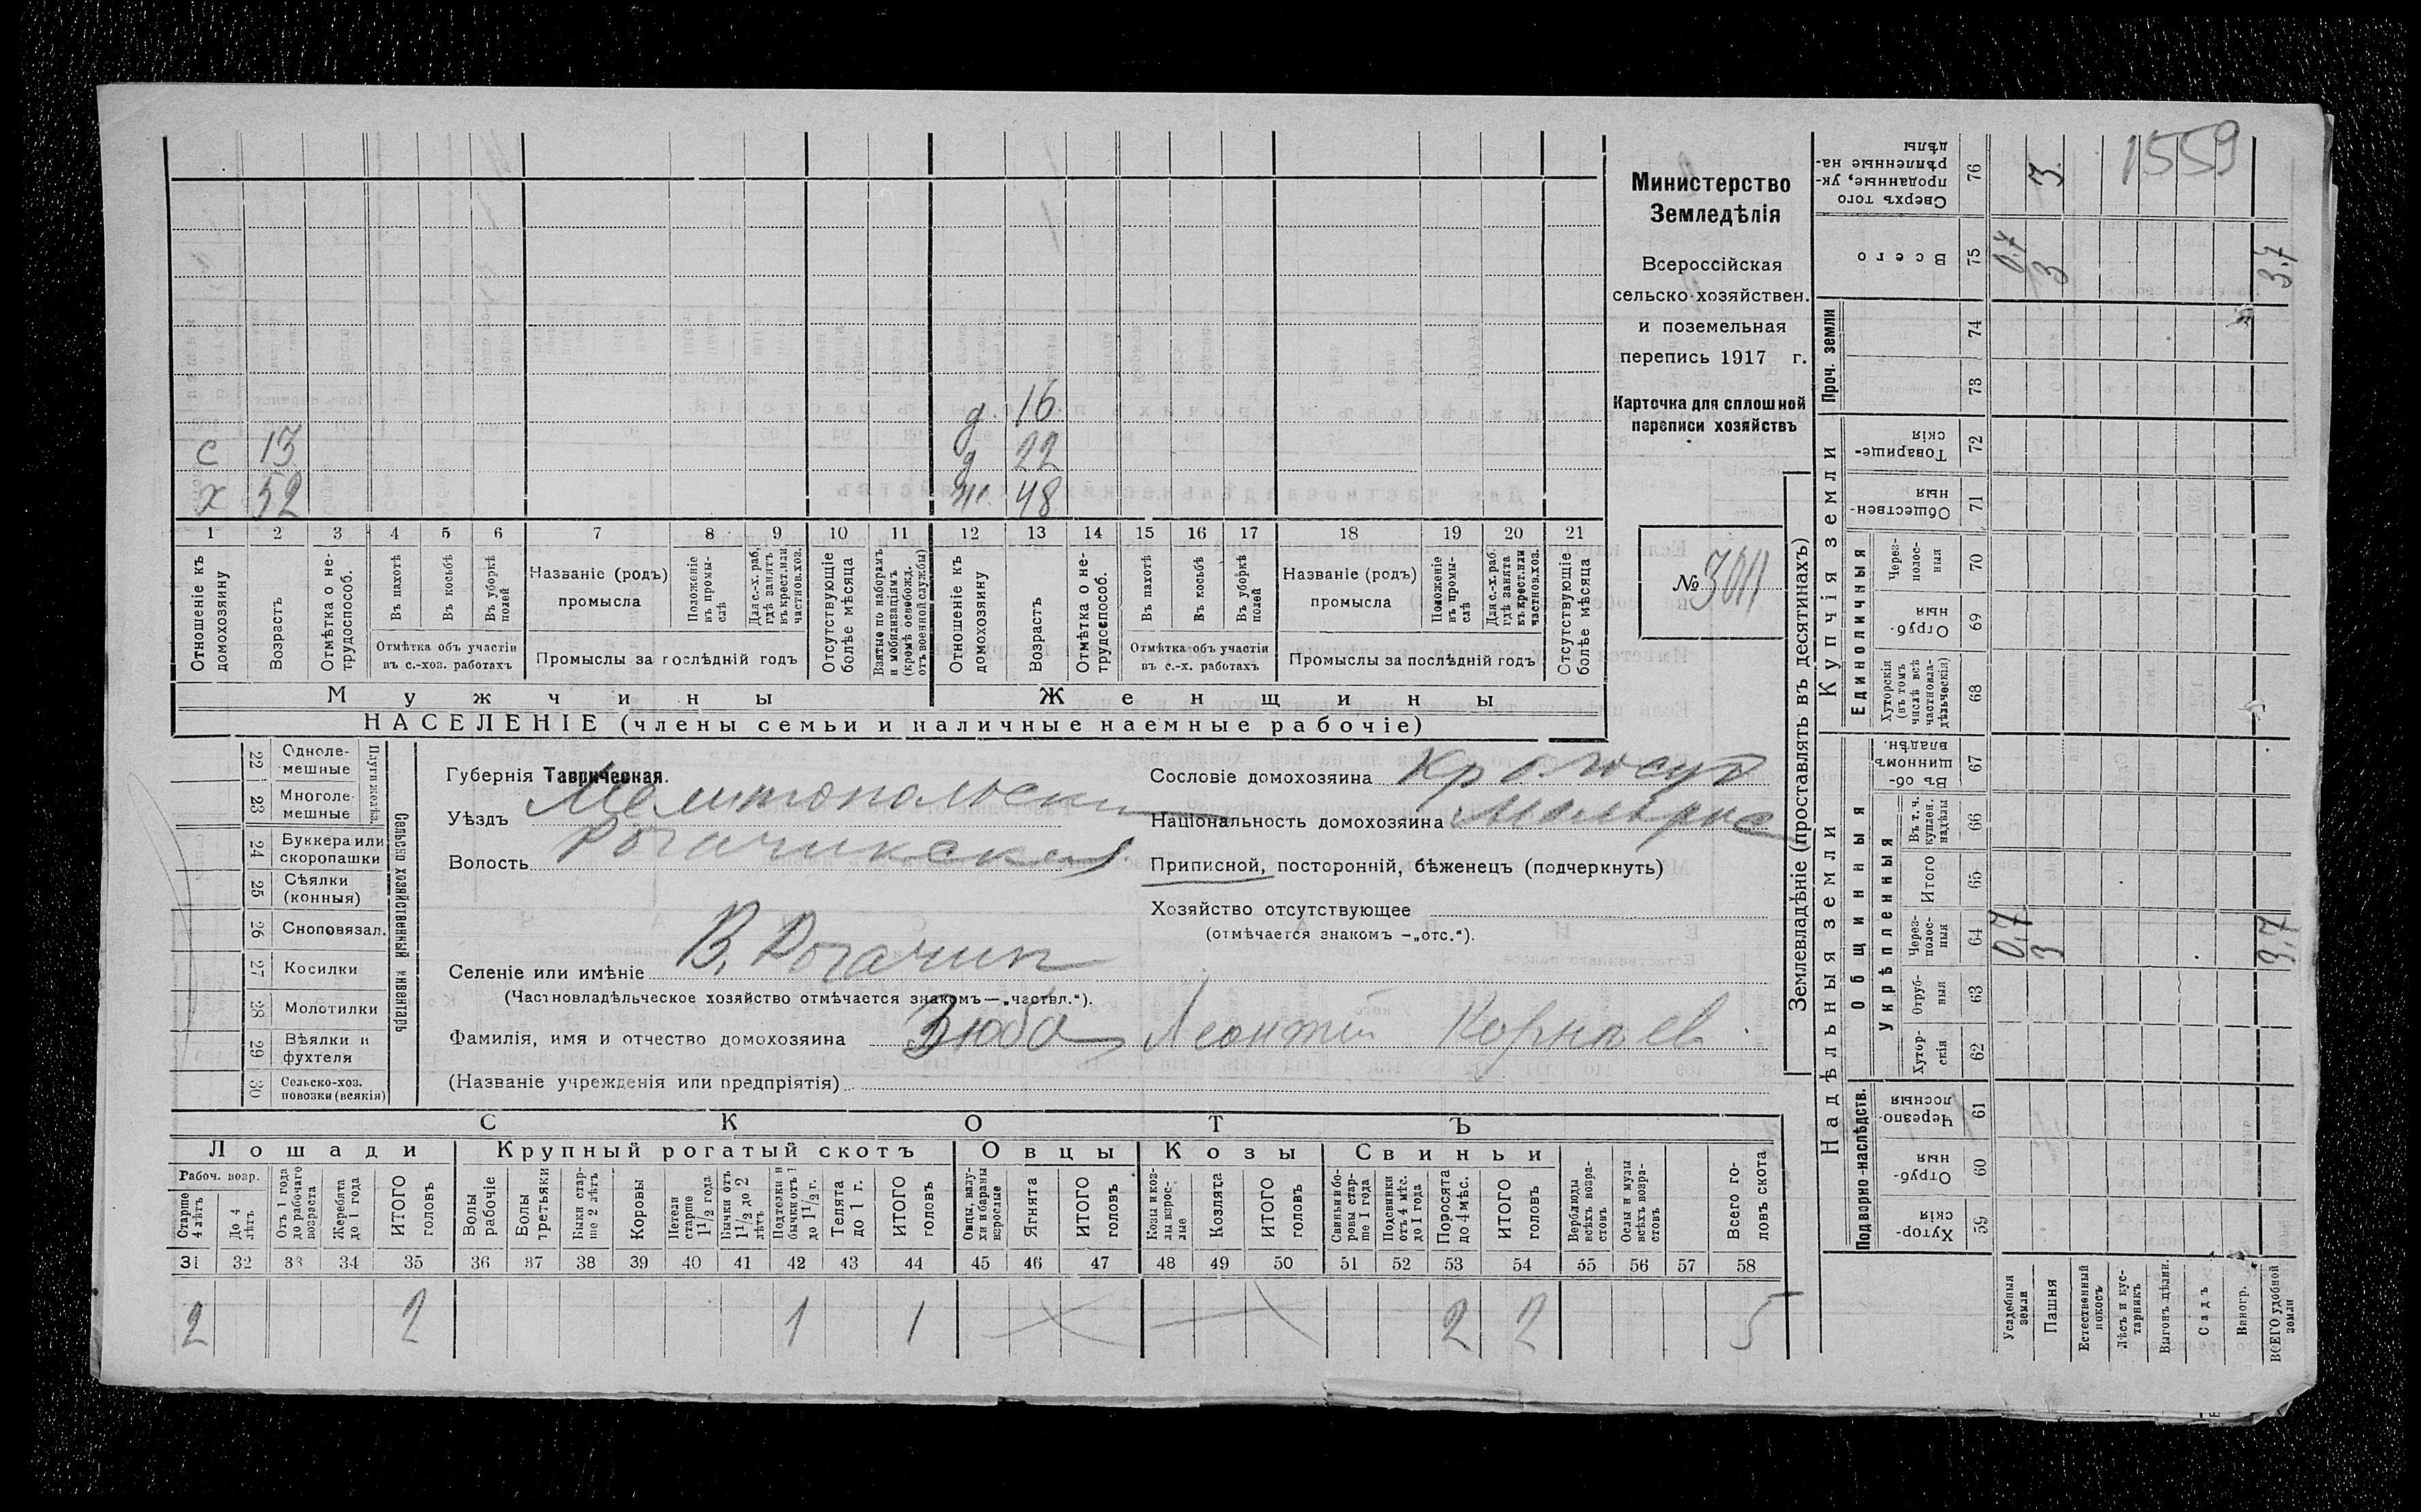 1559
Министерство
Земледѣлія
Всероссійская
сельско-хозяйствен.
и поземельная
перепись 1917 г.
Карточка для сплошной
переписи хозяйствъ
№ 3011
д. 16
с 13 д 22
х 52 ж. 48
1 2 3 4 5 6 7 8 9 10 11 12 13 14 15 16 17 18 19 20 21
Отношеніе къ домохозяину
Возрастъ
Отмѣтка о нетрудоспособ.
Въ пахотѣ
Въ косьбѣ
Въ уборкѣ полей
Отмѣтка объ участіи
въ с.-хоз. работахъ
Названіе (родъ)
промысла
Положеніе въ промыслѣ
Для с.-х. раб. гдѣ занятъ въ крест. или частнов. хоз.
Промыслы за послѣдній годъ
Отсутствующіе болѣе мѣсяца
Взятые по наборамъ и мобилизаціямъ (кромѣ освобожд. отъ военной службы)
Отношеніе къ домохозяину
Возрастъ
Отмѣтка о нетрудоспособ.
Въ пахотѣ
Въ косьбѣ
Въ уборкѣ полей
Отмѣтка объ участіи
въ с.-х. работахъ
Названіе (родъ)
промысла
Положеніе въ промыслѣ
Для с.-х. раб. гдѣ занята въ крест. или частнов. хоз.
Промыслы за послѣдній годъ
Отсутствующіе болѣе мѣсяца
Мужчины
Женщины
НАСЕЛЕНІЕ (члены семьи и наличные наемные рабочіе)
Сельско хозяйственный инвентарь
Плуги желѣз.
22 Одноле-
мешные
23 Многоле-
мешные
24 Буккера или
скоропашки
25 Сѣялки
(конныя)
26 Сноповязал.
27 Косилки
28 Молотилки
29 Вѣялки и
фухтеля
30 Сельско-хоз.
повозки (всякія)
Губернія Таврическая.
Уѣздъ Мелитопольски
Волость Рогачикская
Селеніе или имѣніе В. Рогачик
(Частновладѣльческое хозяйство отмѣчается знакомъ—„частвл.“).
Фамилія, имя и отчество домохозяина Зюба Леонтій Корнѣев
(Названіе учрежденія или предпріятія)
Сословіе домохозяина
Національность домохозяина Малорос
Приписной, посторонній, бѣженецъ (подчеркнуть)
Хозяйство отсутствующее
(отмѣчается знакомъ —„отс.“).
СКОТЪ
Лошади Крупный рогатый скотъ Овцы Козы Свиньи
Рабоч. возр.
Старше 4 лѣтъ
До 4 лѣтъ
Отъ 1 года до рабочаго возраста
Жеребята до 1 года
ИТОГО головъ
Волы рабочіе
Волы третьяки
Быки старше 2 лѣтъ
Коровы
Нетели старше 1 1/2 года
Бычки отъ 1 1/2 до 2 лѣтъ
Подтелки и бычки отъ 1 до 1 1/2 г.
Телята до 1 г.
ИТОГО головъ
Овцы, валухи и бараны взрослые
Ягнята
ИТОГО головъ
Козы и козлы взрослые
Козлята
ИТОГО головъ
Свиньи и боровы старше 1 года
Подсвинки отъ 4 мѣс. до 1 года
Поросята до 4 мѣс.
ИТОГО головъ
Верблюды всѣхъ возрастовъ
Ослы и мулы всѣхъ возрастовъ
Всего головъ скота
31 32 33 34 35 36 37 38 39 40 41 42 43 44 45 46 47 48 49 50 51 52 53 54 55 56 57 58
2 2 1 1 2 2 5
Землевладѣніе (проставлять въ десятинахъ)
Надѣльныя земли
Купчія земли
Проч. земли
Подворно-наслѣдств.
Общинныя
Укрѣпленныя
Единоличныя
Сверхъ того проданные, укрѣпленные надѣлы 76 3
Всего 75 0.7 3 3.7
74
73
Товарищескія 72
Общественныя 71
Черезполосныя 70
Отрубныя 69
Хуторскія (въ томъ числѣ всѣ частновладѣльческія) 68
Въ общинномъ владѣн. 67
Въ т. ч. куплен. надѣлы 66
Итого 65
Черезполосныя 64 0.7 3 3.7
Отрубныя 63
Хуторскія 62
Черезполосныя 61
Отрубныя 60
Хуторскія 59
Усадебныя земли
Пашня
Естественный покосъ
Лѣсъ и кустарникъ
Выгонъ цѣлин.
Садъ
Виногр.
ВСЕГО удобной земли